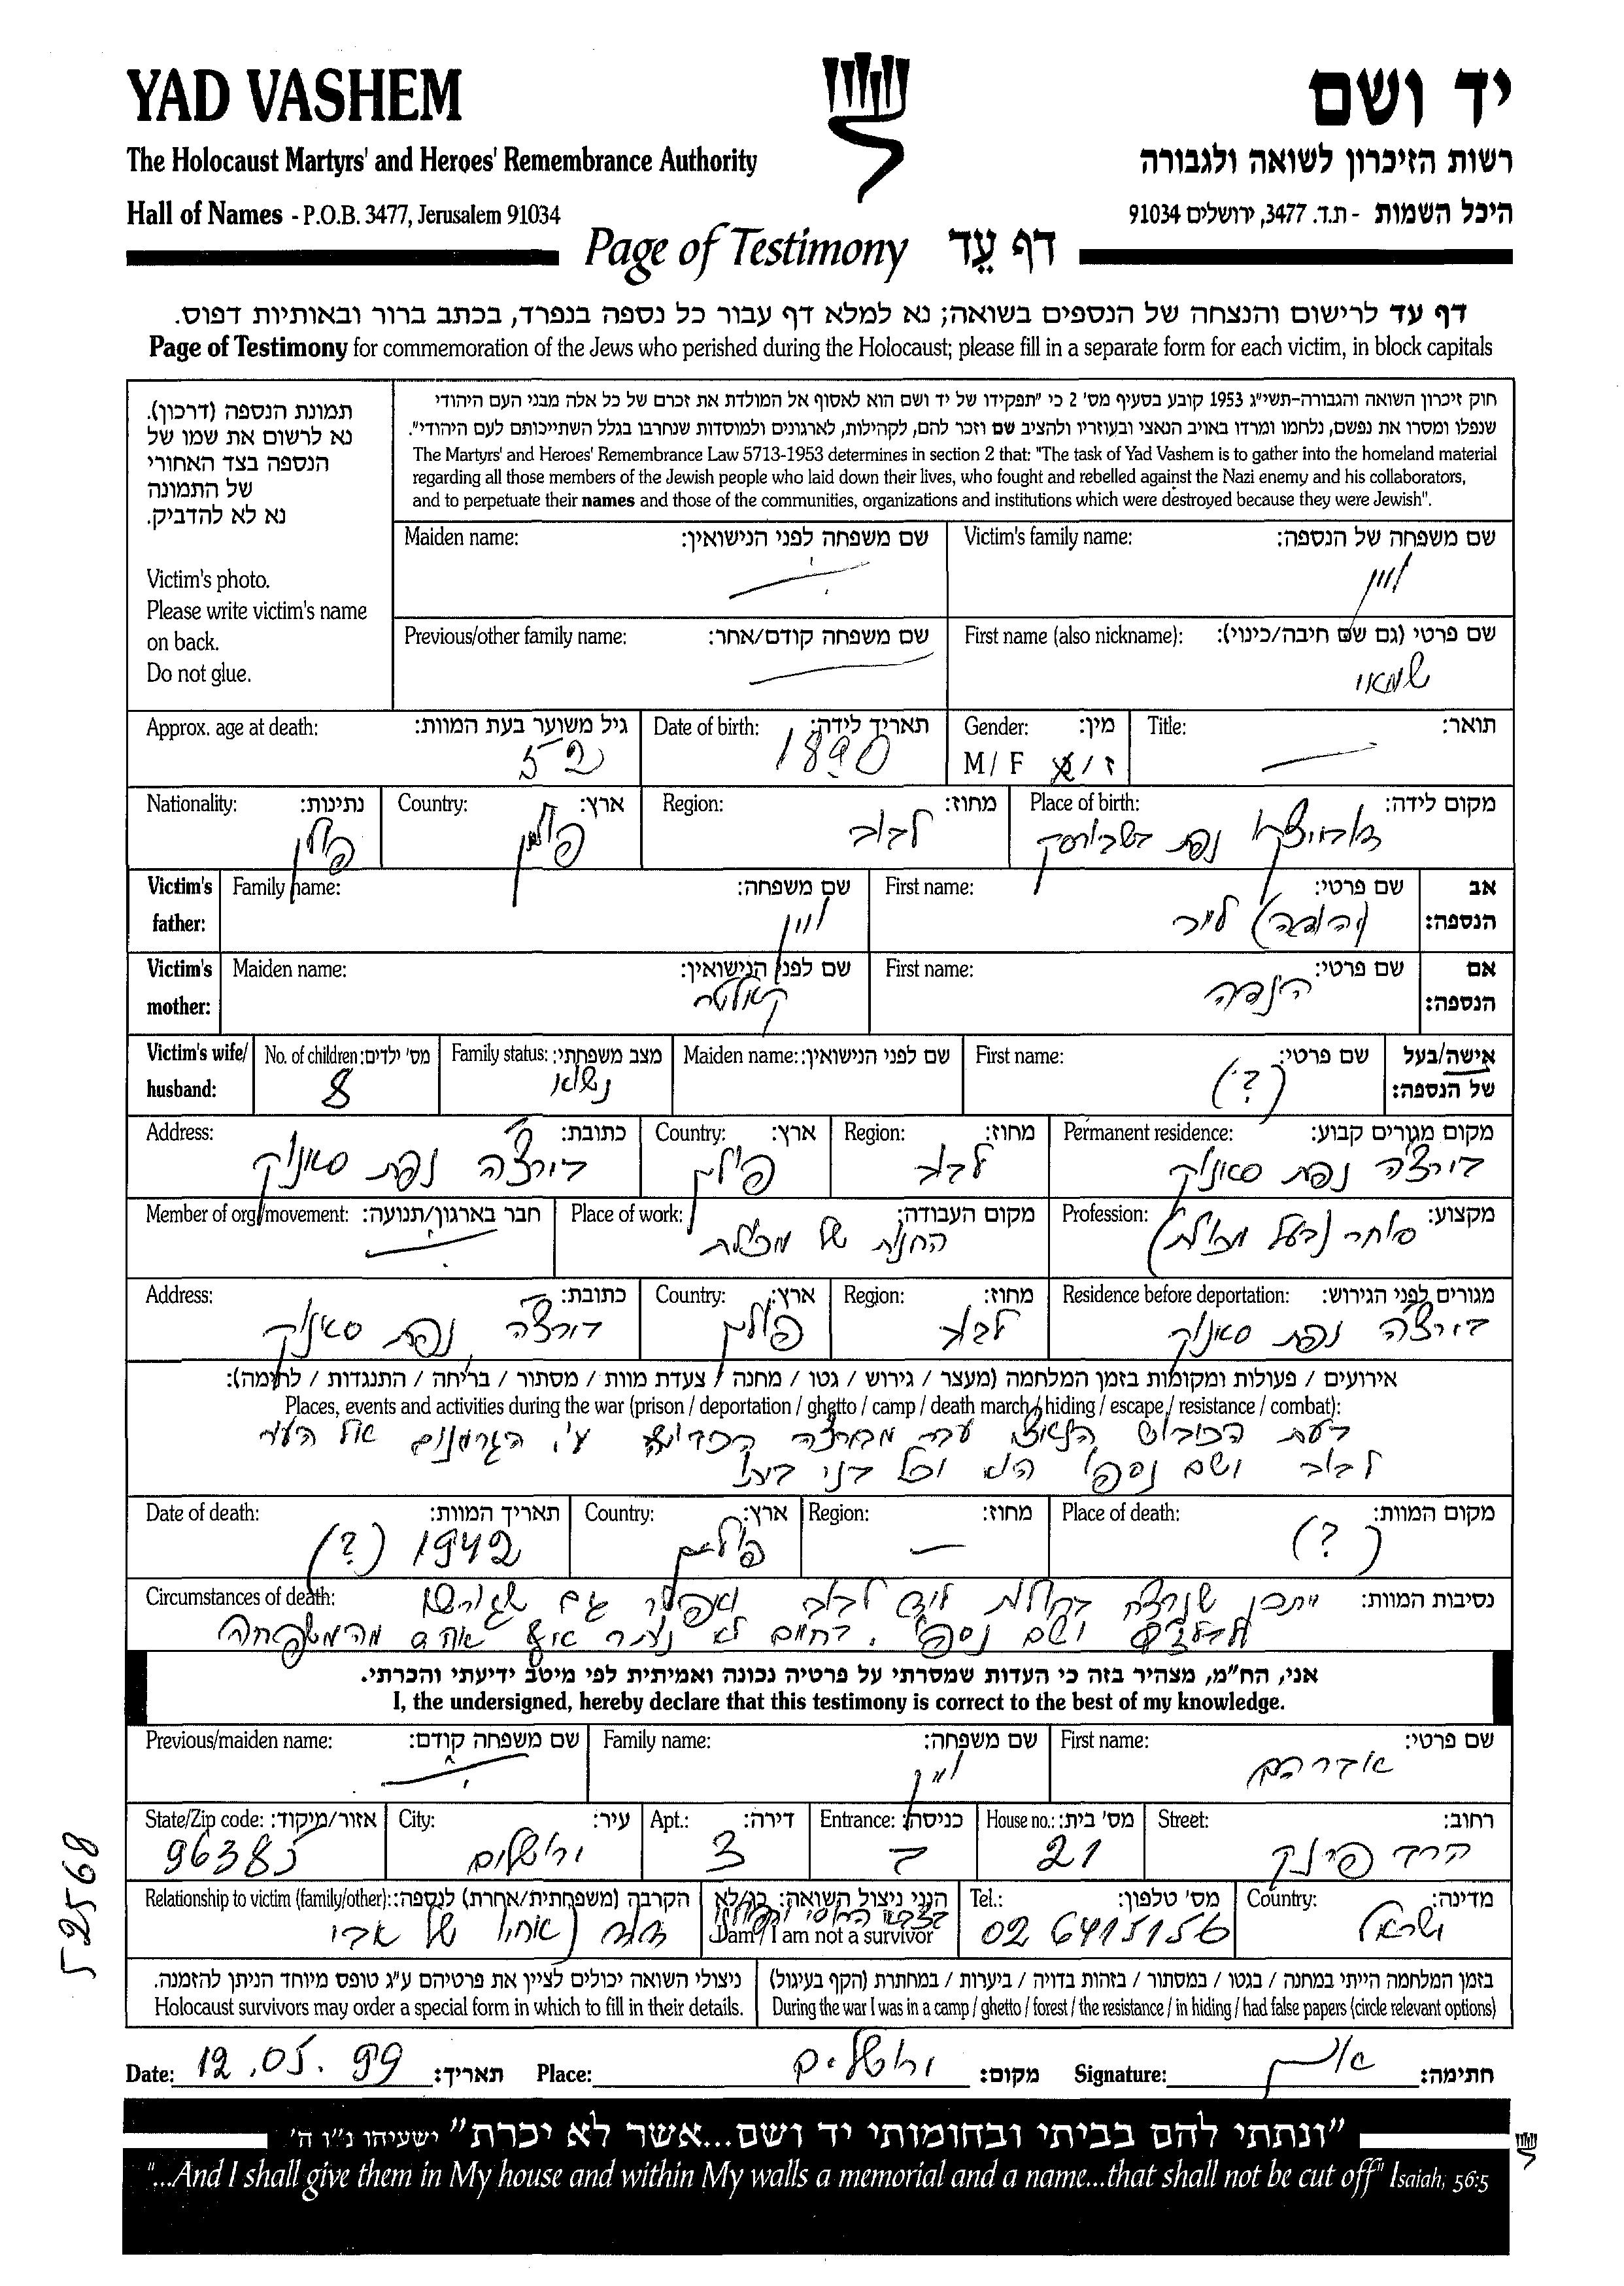 YAD VASHEM
יד ושם
The Holocaust Martyrs' and Heroes' Remembrance Authority
רשות הזיכרון לשואה ולגבורה
Hall of Names - P.O.B. 3477, Jerusalem 91034
היכל השמות - ת.ד. 3477, ירושלים 91034
Page of Testimony דף עֵד
דף עד לרישום והנצחה של הנספים בשואה; נא למלא דף עבור כל נספה בנפרד, בכתב ברור ובאותיות דפוס.
Page of Testimony for commemoration of the Jews who perished during the Holocaust; please fill in a separate form for each victim, in block capitals
תמונת הנספה (דרכון).
נא לרשום את שמו של
הנספה בצד האחורי
של התמונה
נא לא להדביק.
Victim's photo.
Please write victim's name
on back.
Do not glue.
חוק זיכרון השואה והגבורה-תשי"ג 1953 קובע בסעיף מס' 2 כי "תפקידו של יד ושם הוא לאסוף אל המולדת את זכרם של כל אלה מבני העם היהודי
שנפלו ומסרו את נפשם, נלחמו ומרדו באויב הנאצי ובעוזריו ולהציב שם וזכר להם, לקהילות, לארגונים ולמוסדות שנחרבו בגלל השתייכותם לעם היהודי".
The Martyrs' and Heroes' Remembrance Law 5713-1953 determines in section 2 that: "The task of Yad Vashem is to gather into the homeland material
regarding all those members of the Jewish people who laid down their lives, who fought and rebelled against the Nazi enemy and his collaborators,
and to perpetuate their names and those of the communities, organizations and institutions which were destroyed because they were Jewish".
Victim's family name: שם משפחה של הנספה:
לוין
Maiden name: שם משפחה לפני הנישואין:
First name (also nickname): שם פרטי (גם שם חיבה/כינוי):
שמאי
Previous/other family name: שם משפחה קודם/אחר:
Title: תואר:
Gender: מין:
M / F ז / נ
Date of birth: תאריך לידה:
1890
Approx. age at death: גיל משוער בעת המוות:
52
Place of birth: מקום לידה:
נפת
Region: מחוז:
לבוב
Country: ארץ:
פולין
Nationality: נתינות:
פולין
אב הנספה: Victim's father:
First name: שם פרטי:
ליב
Family name: שם משפחה:
לוין
אם הנספה: Victim's mother:
First name: שם פרטי:
Maiden name: שם לפני הנישואין:
אישה/בעל של הנספה: Victim's wife/ husband:
First name: שם פרטי:
(?)
Maiden name: שם לפני הנישואין:
Family status: מצב משפחתי:
נשוא
No. of children: מס' ילדים:
8
Permanent residence: מקום מגורים קבוע:
נפת סאנוק
Region: מחוז:
לבוב
Country: ארץ:
פולין
Address: כתובת:
נפת סאנוק
Profession: מקצוע:
סוחר (בעל מכולת)
Place of work: מקום העבודה:
החנות של מכולת
Member of org/movement: חבר בארגון/תנועה:
Residence before deportation: מגורים לפני הגירוש:
נפת סאנוק
Region: מחוז:
לבוב
Country: ארץ:
פולין
Address: כתובת:
נפת סאנוק
אירועים / פעולות ומקומות בזמן המלחמה (מעצר / גירוש / גטו / מחנה / צעדת מוות / מסתור / בריחה / התנגדות / לחימה):
Places, events and activities during the war (prison / deportation / ghetto / camp / death march / hiding / escape / resistance / combat):
בעת הכיבוש הנאצי עבר ע"י הגרמנים אל העיר
לבוב ושם נספה הוא וכל בני ביתו
Place of death: מקום המוות:
(?)
Region: מחוז:
Country: ארץ:
פולין
Date of death: תאריך המוות:
1942 (?)
Circumstances of death: נסיבות המוות:
יתכן שנרצח לבוב גם
ושם נספה. בחיים לא נותר איש מהמשפחה
אני, הח"מ, מצהיר בזה כי העדות שמסרתי על פרטיה נכונה ואמיתית לפי מיטב ידיעתי והכרתי.
I, the undersigned, hereby declare that this testimony is correct to the best of my knowledge.
First name: שם פרטי:
אברהם
Family name: שם משפחה:
לוין
Previous/maiden name: שם משפחה קודם:
Street: רחוב:
הרב פינק
House no.: מס' בית:
21
Entrance: כניסה:
Apt.: דירה:
3
City: עיר:
ירושלים
State/Zip code: אזור/מיקוד:
96385
Country: מדינה:
ישראל
Tel.: מס' טלפון:
02 6415156
הנני ניצול השואה: כן/לא
I am / I am not a survivor
Relationship to victim (family/other): הקרבה (משפחתית/אחרת) לנספה:
של אבי
בזמן המלחמה הייתי במחנה / בגטו / במסתור / בזהות בדויה / ביערות / במחתרת (הקף בעיגול)
During the war I was in a camp / ghetto / forest / the resistance / in hiding / had false papers (circle relevant options)
ניצולי השואה יכולים לציין את פרטיהם ע"ג טופס מיוחד הניתן להזמנה.
Holocaust survivors may order a special form in which to fill in their details.
Date: 12.05.99 תאריך: Place: ירושלים מקום: Signature: חתימה:
"ונתתי להם בביתי ובחומותי יד ושם...אשר לא יכרת" ישעיהו נ"ו ה'
"...And I shall give them in My house and within My walls a memorial and a name...that shall not be cut off" Isaiah, 56:5
52568